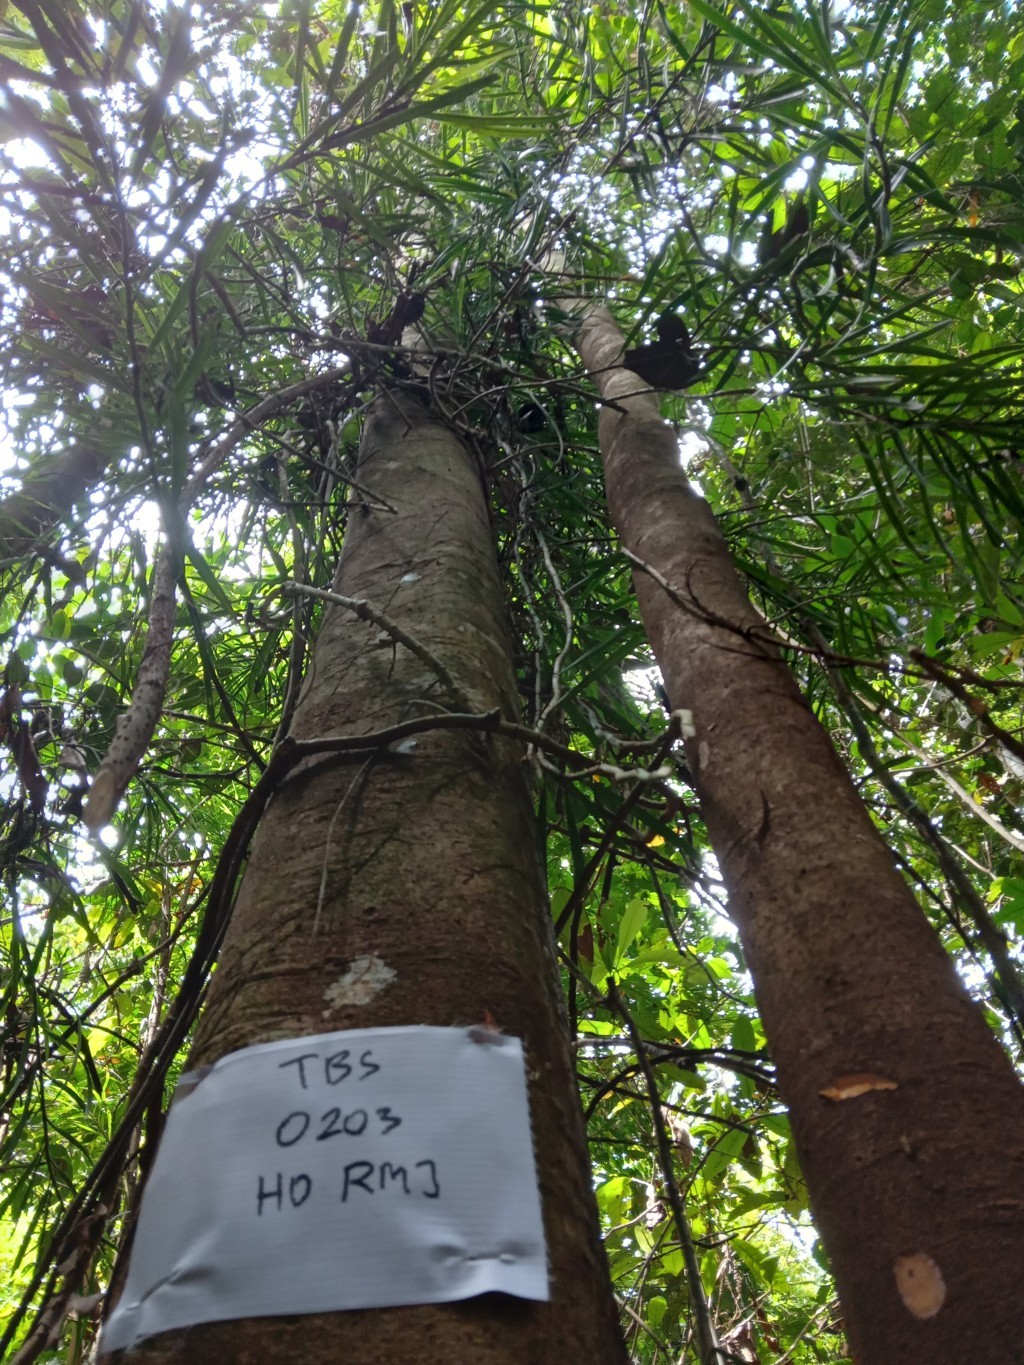 TBS
0203
HO RMJ